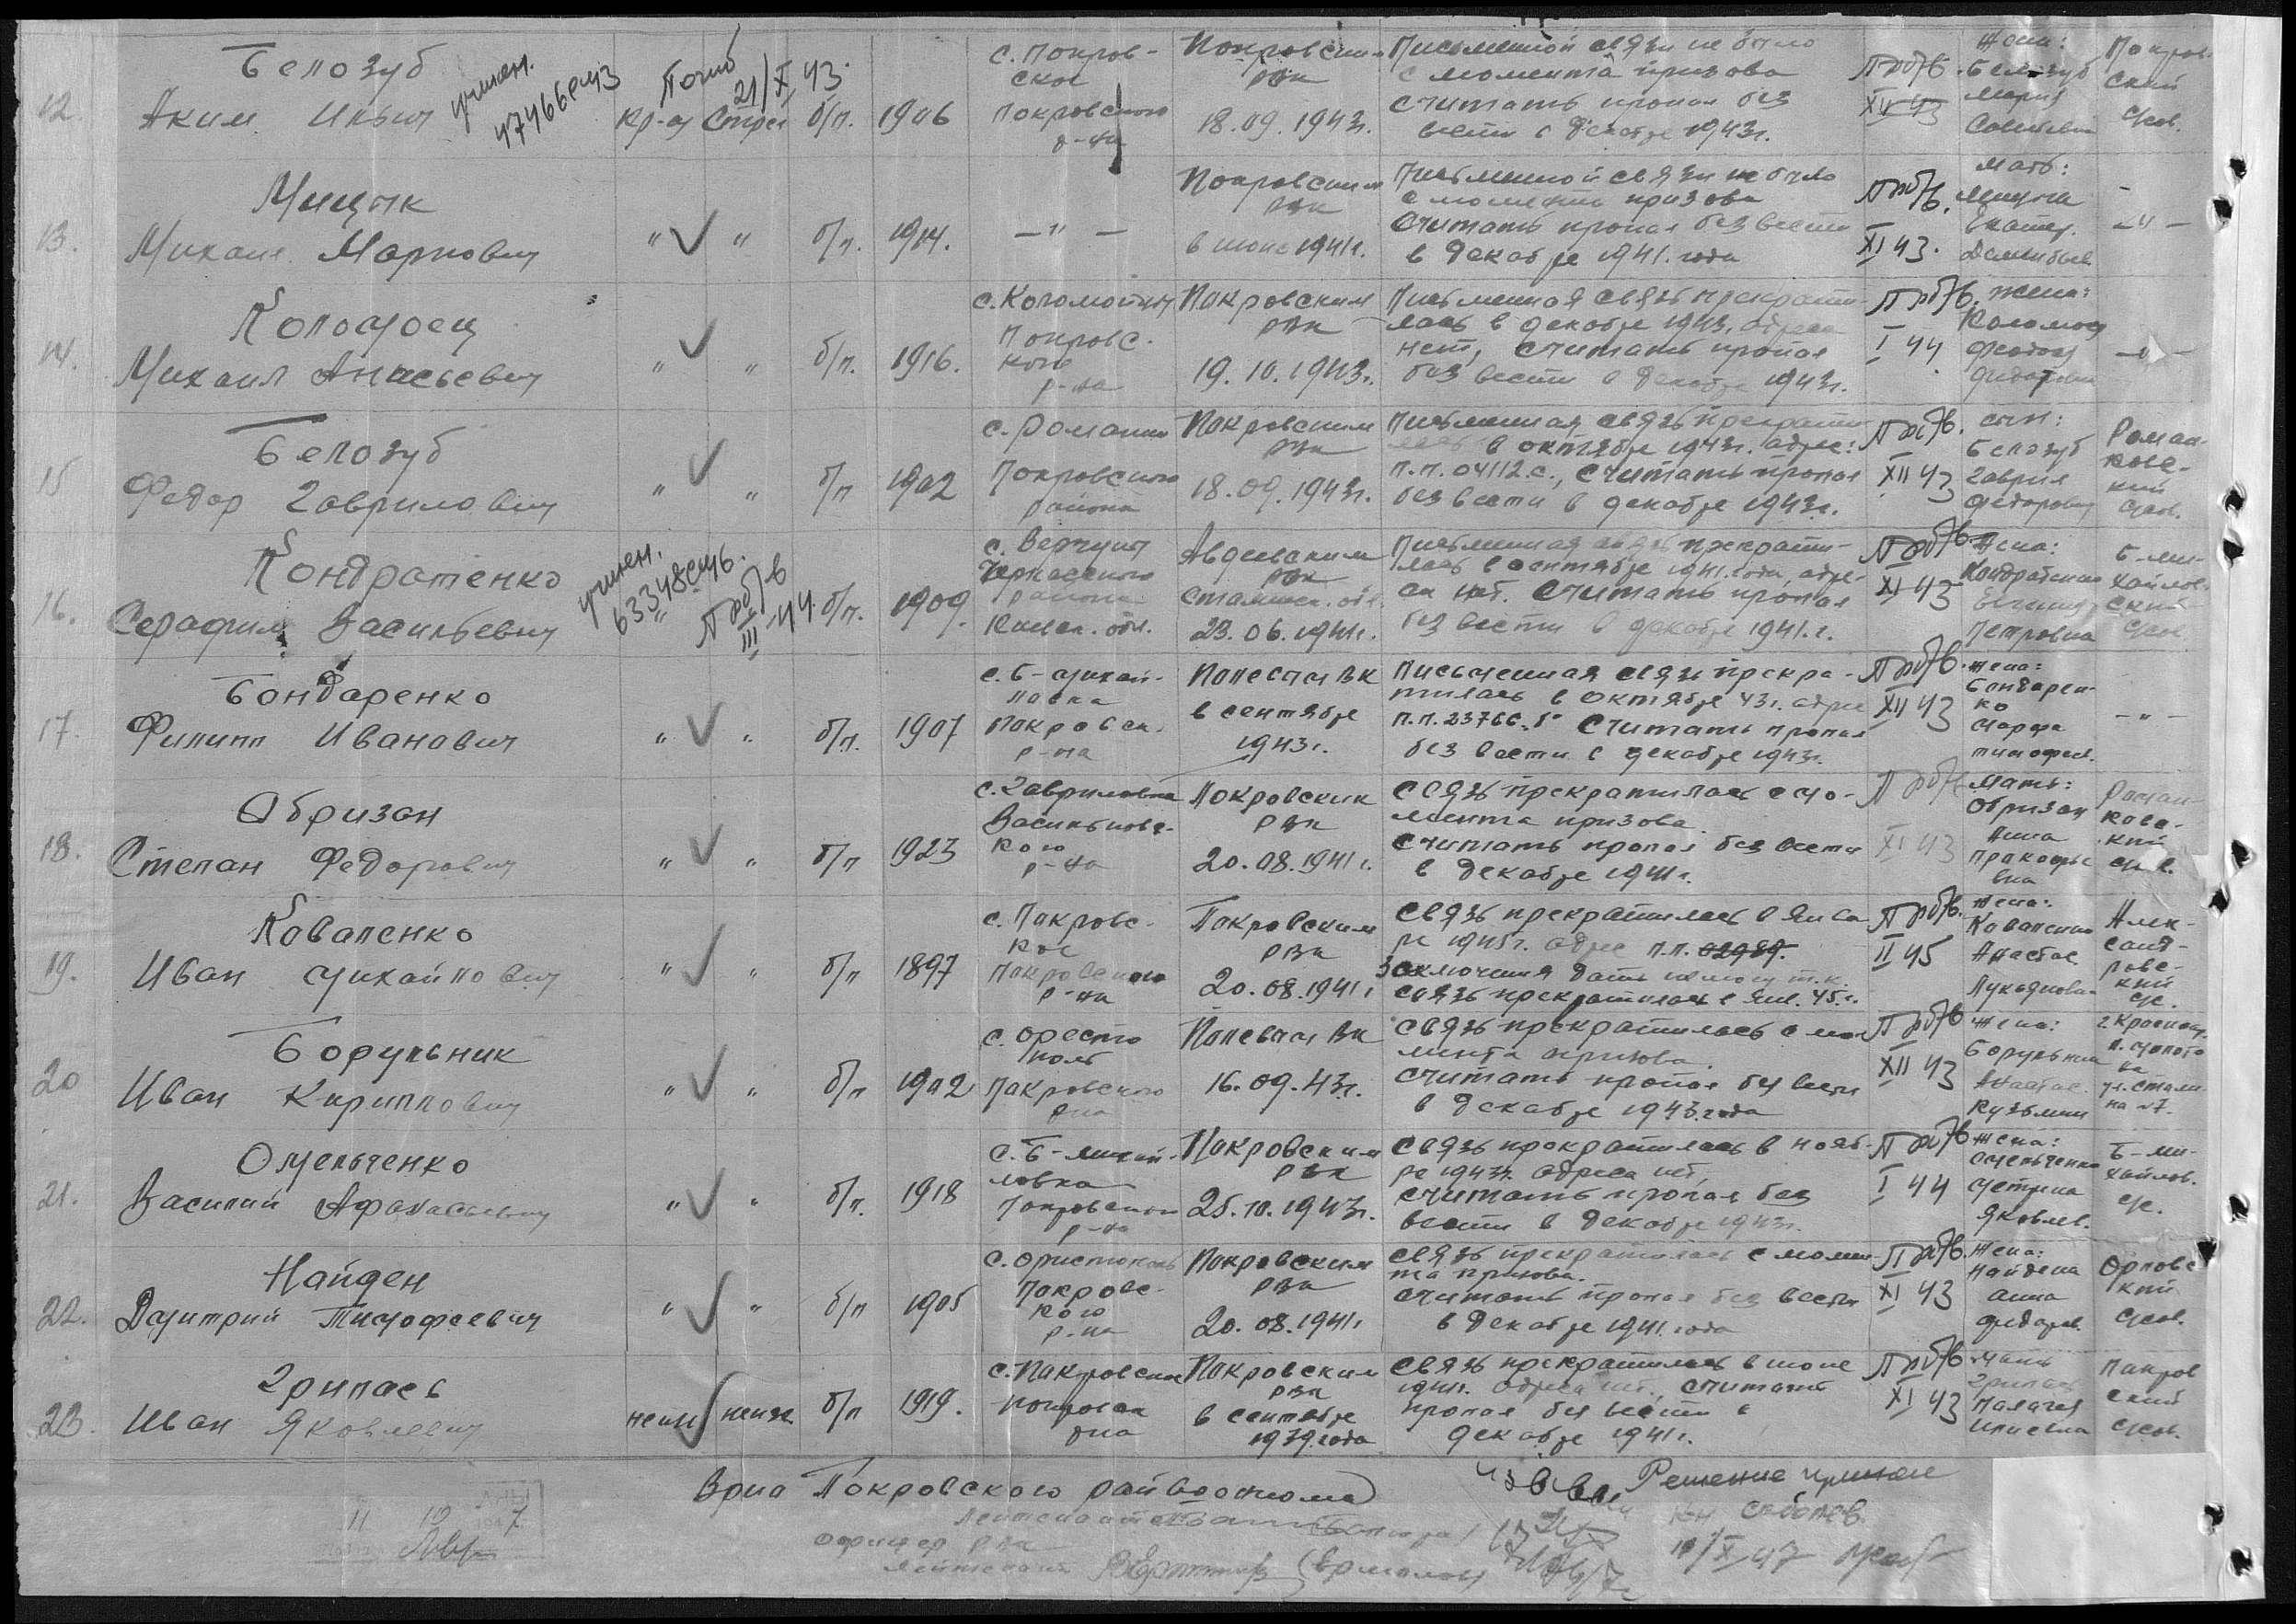 12.
Белозуб
Аким Ильич
учтен.
47466 с 43
Погиб
21/X 43.
Кр-ец Стрел
б/п.
1906
с. Покров-
ское
Покровского
р-на
Покровским
РВК
18.09.1943г.
Письменной связи не было
с момента призова
Считать пропал без
вести в декабре 1943г.
Прб/в.
XII 43
Жена:
Белозуб
Мария
Покров-
ский
с/сов.
13.
Мицик
Михаил Маркович
" "
б/п.
1914.
— " —
Покровским
РВК
в июне 1941г.
Письменной связи не было
с момента призова
Считать пропал без вести
в декабре 1941. года
Прб/в.
XI 43.
Мать:
Екатер.
— " —
14.
Коломоец
Михаил Анасьевич
" "
б/п.
1916.
с. Коломойцы
Покровс-
кого
р-на
Покровским
РВК
19.10.1943г.
Письменная связь прекрати-
лась в декабре 1943. адреса
нет, считать пропал
без вести в декабре 1943г.
Прб/в.
I 44
Жена:
Коломоец
— " —
15
Белозуб
Федор Гаврилович
" "
б/п
1902
с. Романки
Покровского
района
Покровским
РВК
18.09.1943г.
Письменная связь прекрати-
лась в октябре 1943г. адрес:
п.п. 04112.с., Считать пропал
без вести в декабре 1943г.
Прб/в.
XII 43
сын:
Белозуб
Гаврил
Федорович
Роман-
ковс-
кий
с/сов.
16.
Кондратенко
Серафим Васильевич
учтен.
63348 с 46.
Прб/в
III-44.
б/п.
1909.
с. Вергуны
Черкасского
района
Киевск. обл.
Авдеевским
РВК
Сталинск. обл.
23.06.1941г.
Письменная связь прекрати-
лась в сентябре 1941. года, адре-
са нет. Считать пропал
без вести в декабре 1941.г.
Прб/в.
XI 43
Жена:
Кондратенко
Петровна
Б-ми-
хайлов-
ский
с/сов.
17.
Бондаренко
Филипп Иванович
" "
б/п.
1907
с. Б-михай-
ловка
Покровск.
р-на
Полестн ВК
в сентябре
1943г.
Письменная связь прекра-
тилась в октябре 43г. адрес
п.п. 23766."б" Считать пропал
без вести в декабре 1943г.
Прб/в.
XII 43
Жена:
Бондарен-
ко
Марфа
Тимофеев.
— " —
18.
Обризан
Степан Федорович
" "
б/п
1923
с. Гавриловка
Васильковс-
кого
р-на
Покровским
РВК
20.08.1941г.
Связь прекратилась с мо-
мента призова.
Считать пропал без вести
в декабре 1941г.
Прб/в
XI 43
Мать:
Обризан
Анна
Пракофье
вна
Роман-
ковс-
кий
с/сов.
19.
Коваленко
Иван Михайлович
" "
б/п
1897
с. Покровс-
кое
Покровского
р-на
Покровским
РВК
20.08.1941г
Связь прекратилась в янва
ре 1945г. адрес п.п. 02989.
Заключения дать не могу т.к.
связь прекратилась в янв. 45.г.
Прб/в.
II 45
Жена:
Коваленко
Анастас.
Лукьяновн
Алек-
санд-
ровс-
кий
с/с.
20
Борульник
Иван Кириллович
" "
б/п
1902
с. Оресто
поль
Покровского
р-на
Полевым ВК
16.09.43г.
Связь прекратилась с мо-
мента призова.
Считать пропал без вести
в декабре 1943.года
Прб/в
XII 43
Жена:
Борульник
Анастас.
Кузьмин
ул. Стали-
на №7.
21.
Омельченко
Василий Афанасьевич
" "
б/п.
1918
с. Б-михай-
ловка
Покровского
р-на
Покровским
РВК
25.10.1943г.
Связь прекратилась в нояб-
ре 1943г. адреса нет,
считать пропал без
вести в декабре 1943г.
Прб/в
I 44
Жена:
Омельченко
Яковлев.
Б-ми-
хайлов.
с/с.
22.
Найден
Дмитрий Тимофеевич
" "
б/п
1905
с. Ористополь
Покровс-
кого
р-на
Покровским
РВК
20.08.1941г
Связь прекратилась с момен-
та призова.
Считать пропал без вести
в декабре 1941.года
Прб/в.
XI 43
Жена:
Найдена
Анна
Федоров.
Орловс
кий
с/сов.
23.
Грипась
Иван Яковлевич
неизв неизв.
б/п
1919.
с. Покровское
Покровск
р-на
Покровским
РВК
в сентябре
1939.года
Связь прекратилась в июне
1941г. адреса нет, считать
пропал без вести в
декабре 1941г.
Прб/в
XI 43
Мать
Грипась
Палагея
Покров
ский
с/сов.
Врио Покровского райвоенкома
лейтенант
офицер РВК
лейтенант (Ермолов)
Решение принял
Соболев.
10/X 47
11 10 7